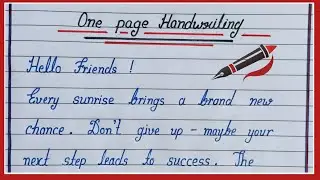 One page Handwriting
Hello Friends !
Every sunrise brings a brand new
chance. Don't give up - maybe your
next step leads to success. The